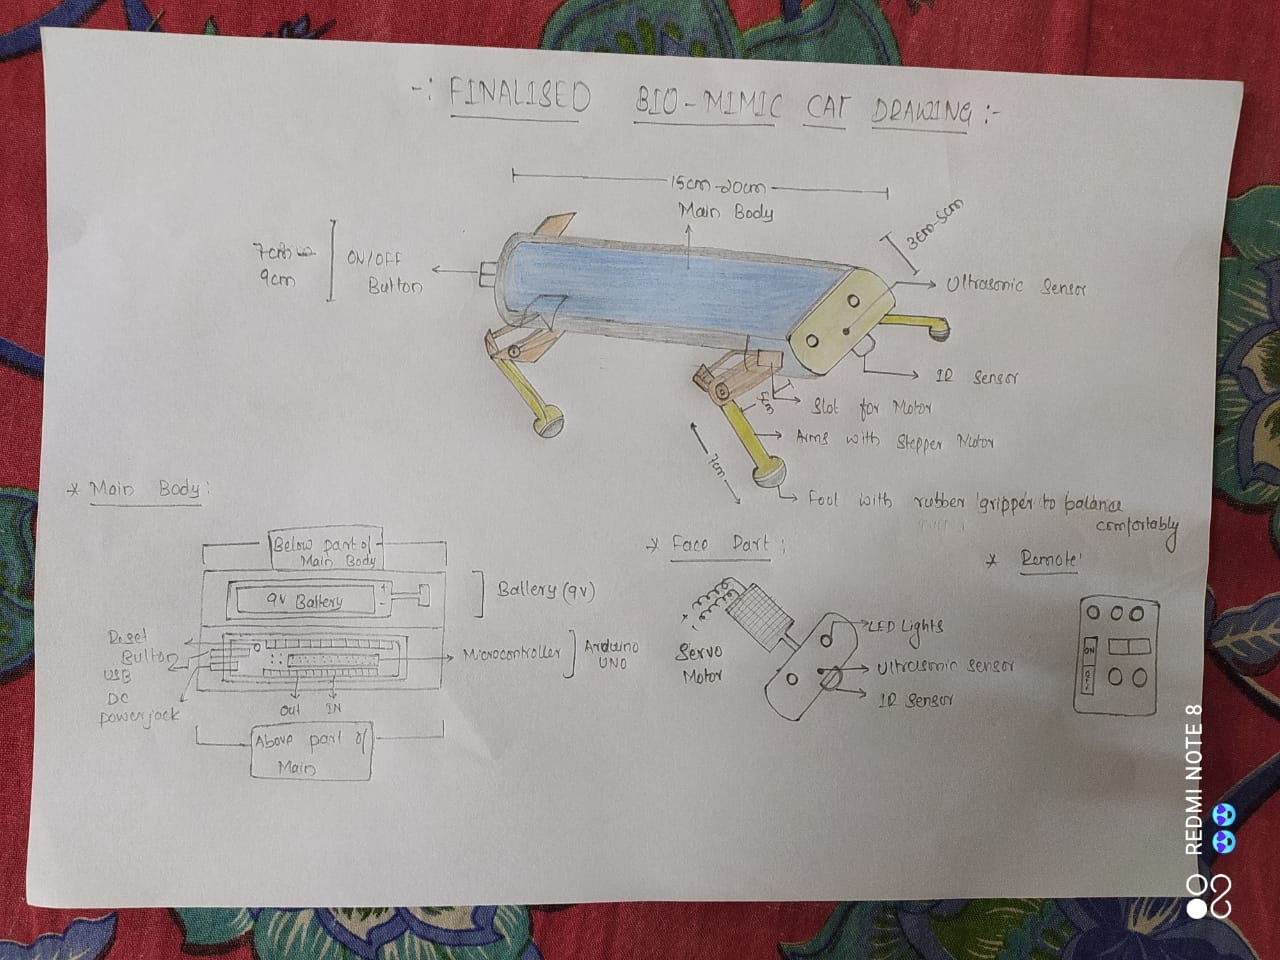 -: FINALISED BIO-MIMIC CAT DRAWING :-
15cm-20cm
Main Body
3cm-5cm
7cm
9cm
ON/OFF
Button
Ultrasonic Sensor
IR Sensor
Slot for Motor
Arms with Stepper Motor
7cm
Foot with rubber gripper to balance
comfortably
* Main Body:
Below part of
Main Body
9v Battery
+
-
Battery (9v)
Reset
Button
USB
DC
powerjack
Microcontroller
Arduino
UNO
Out
IN
Above part of
Main
* Face Part:
+
-
Servo
Motor
LED Lights
Ultrasonic sensor
IR Sensor
* Remote:
ON
OFF
REDMI NOTE 8